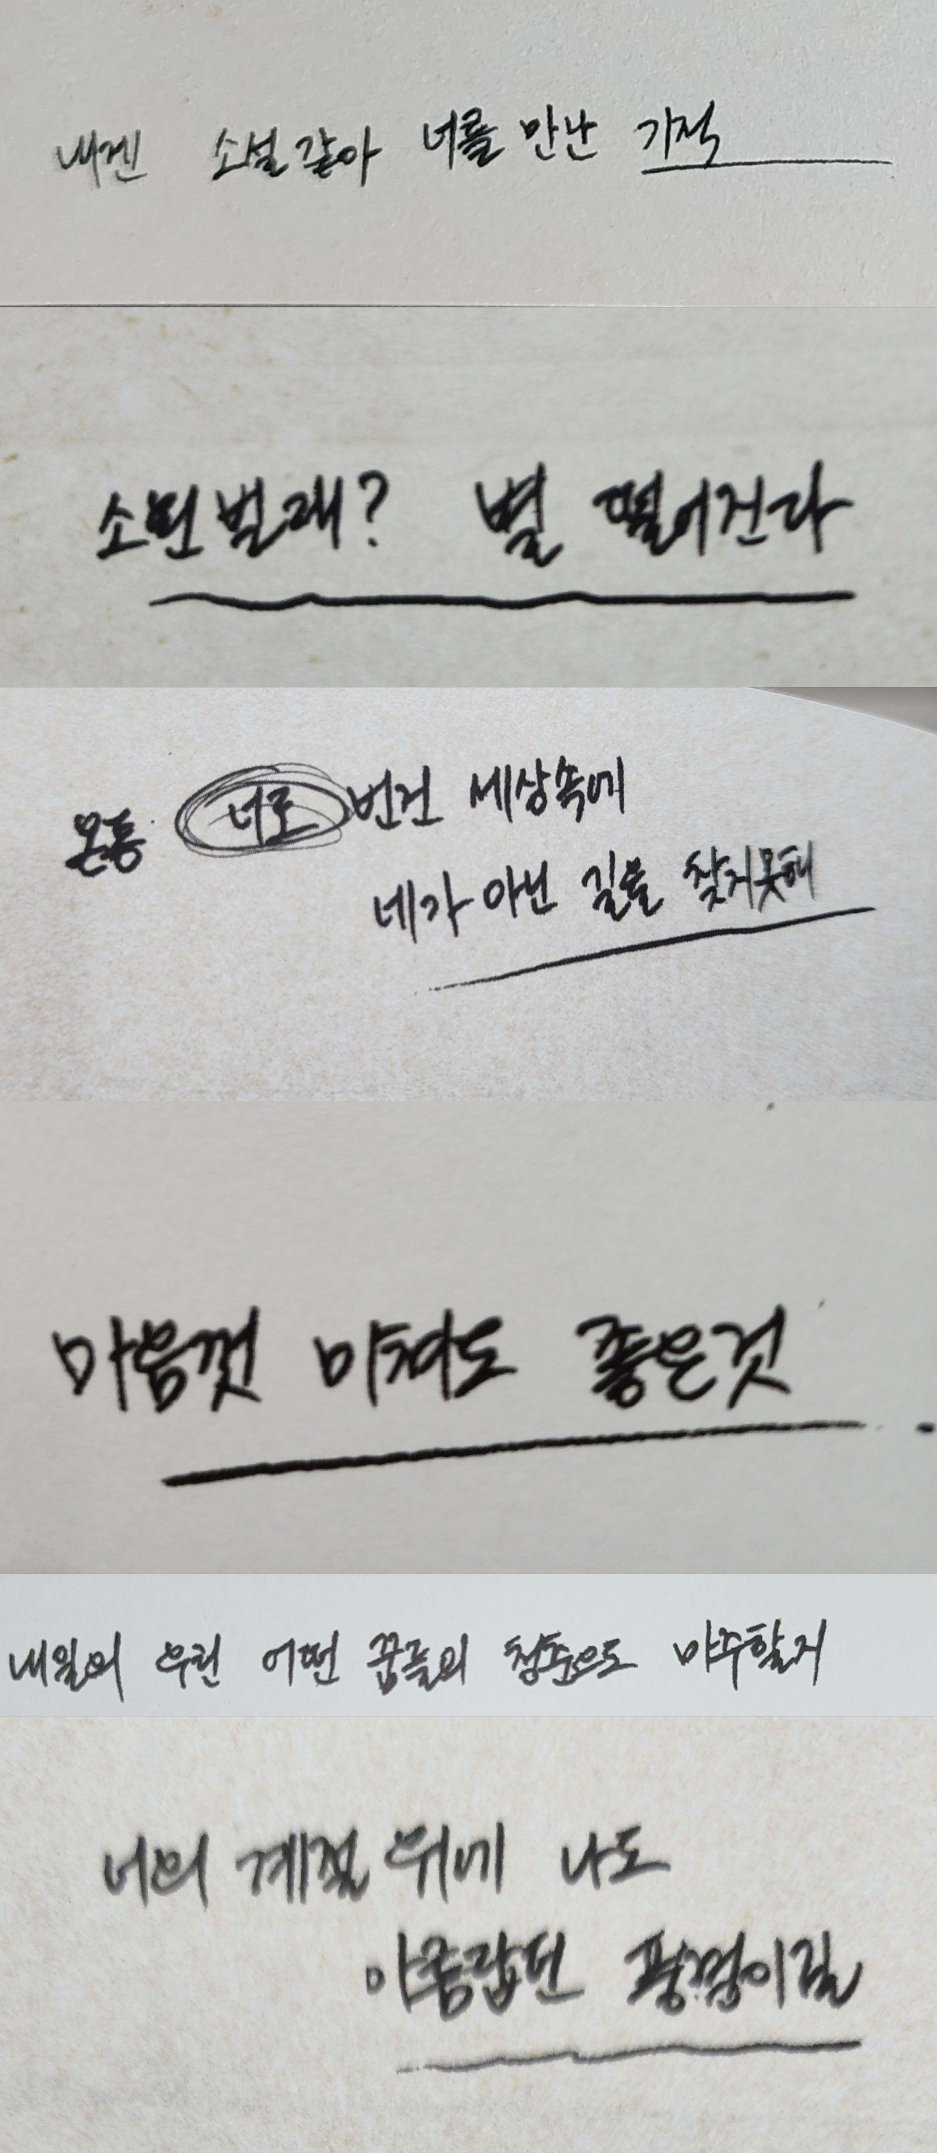 내겐 소설 같아 너를 만난 기적
소원 빌래? 별 떨어진다
온통 너로 번진 세상속에
네가 아닌 길을 찾지못해
마음껏 미쳐도 좋은것
내일의 우린 어떤 꿈들의 청춘으로 마주할지
너의 계절 위에 나도
아름답던 풍경이길